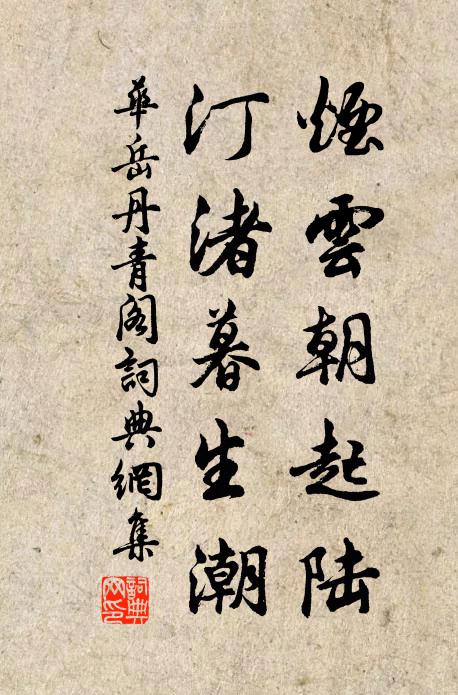 煙雲朝起陆
汀渚暮生潮
華岳丹青阁詞典網集
詞典网印